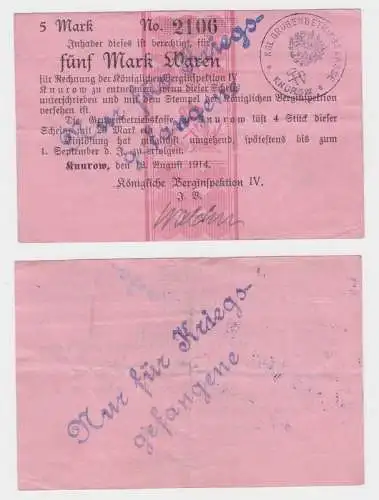 5 Mark No. 2106
Inhaber dieses ist berechtigt, für
fünf Mark Waren
für Rechnung der Königlichen Berginspektion IV
Knurow zu entnehmen, wenn dieser Schein
unterschrieben und mit dem Stempel der Königlichen Berginspektion
versehen ist.
Die Grubenbetriebskasse Knurow löst 4 Stück dieser
Scheine mit 20 Mark ein.
Einlösung hat möglichst umgehend, spätestens bis zum
1. September d. J. zu erfolgen.
Knurow, den 12. August 1914.
Königliche Berginspektion IV.
J. V.
KGL. GRUBENBETRIEBSKASSE
* KNUROW *
Nur für Kriegs-
gefangene
Nur für Kriegs-
gefangene